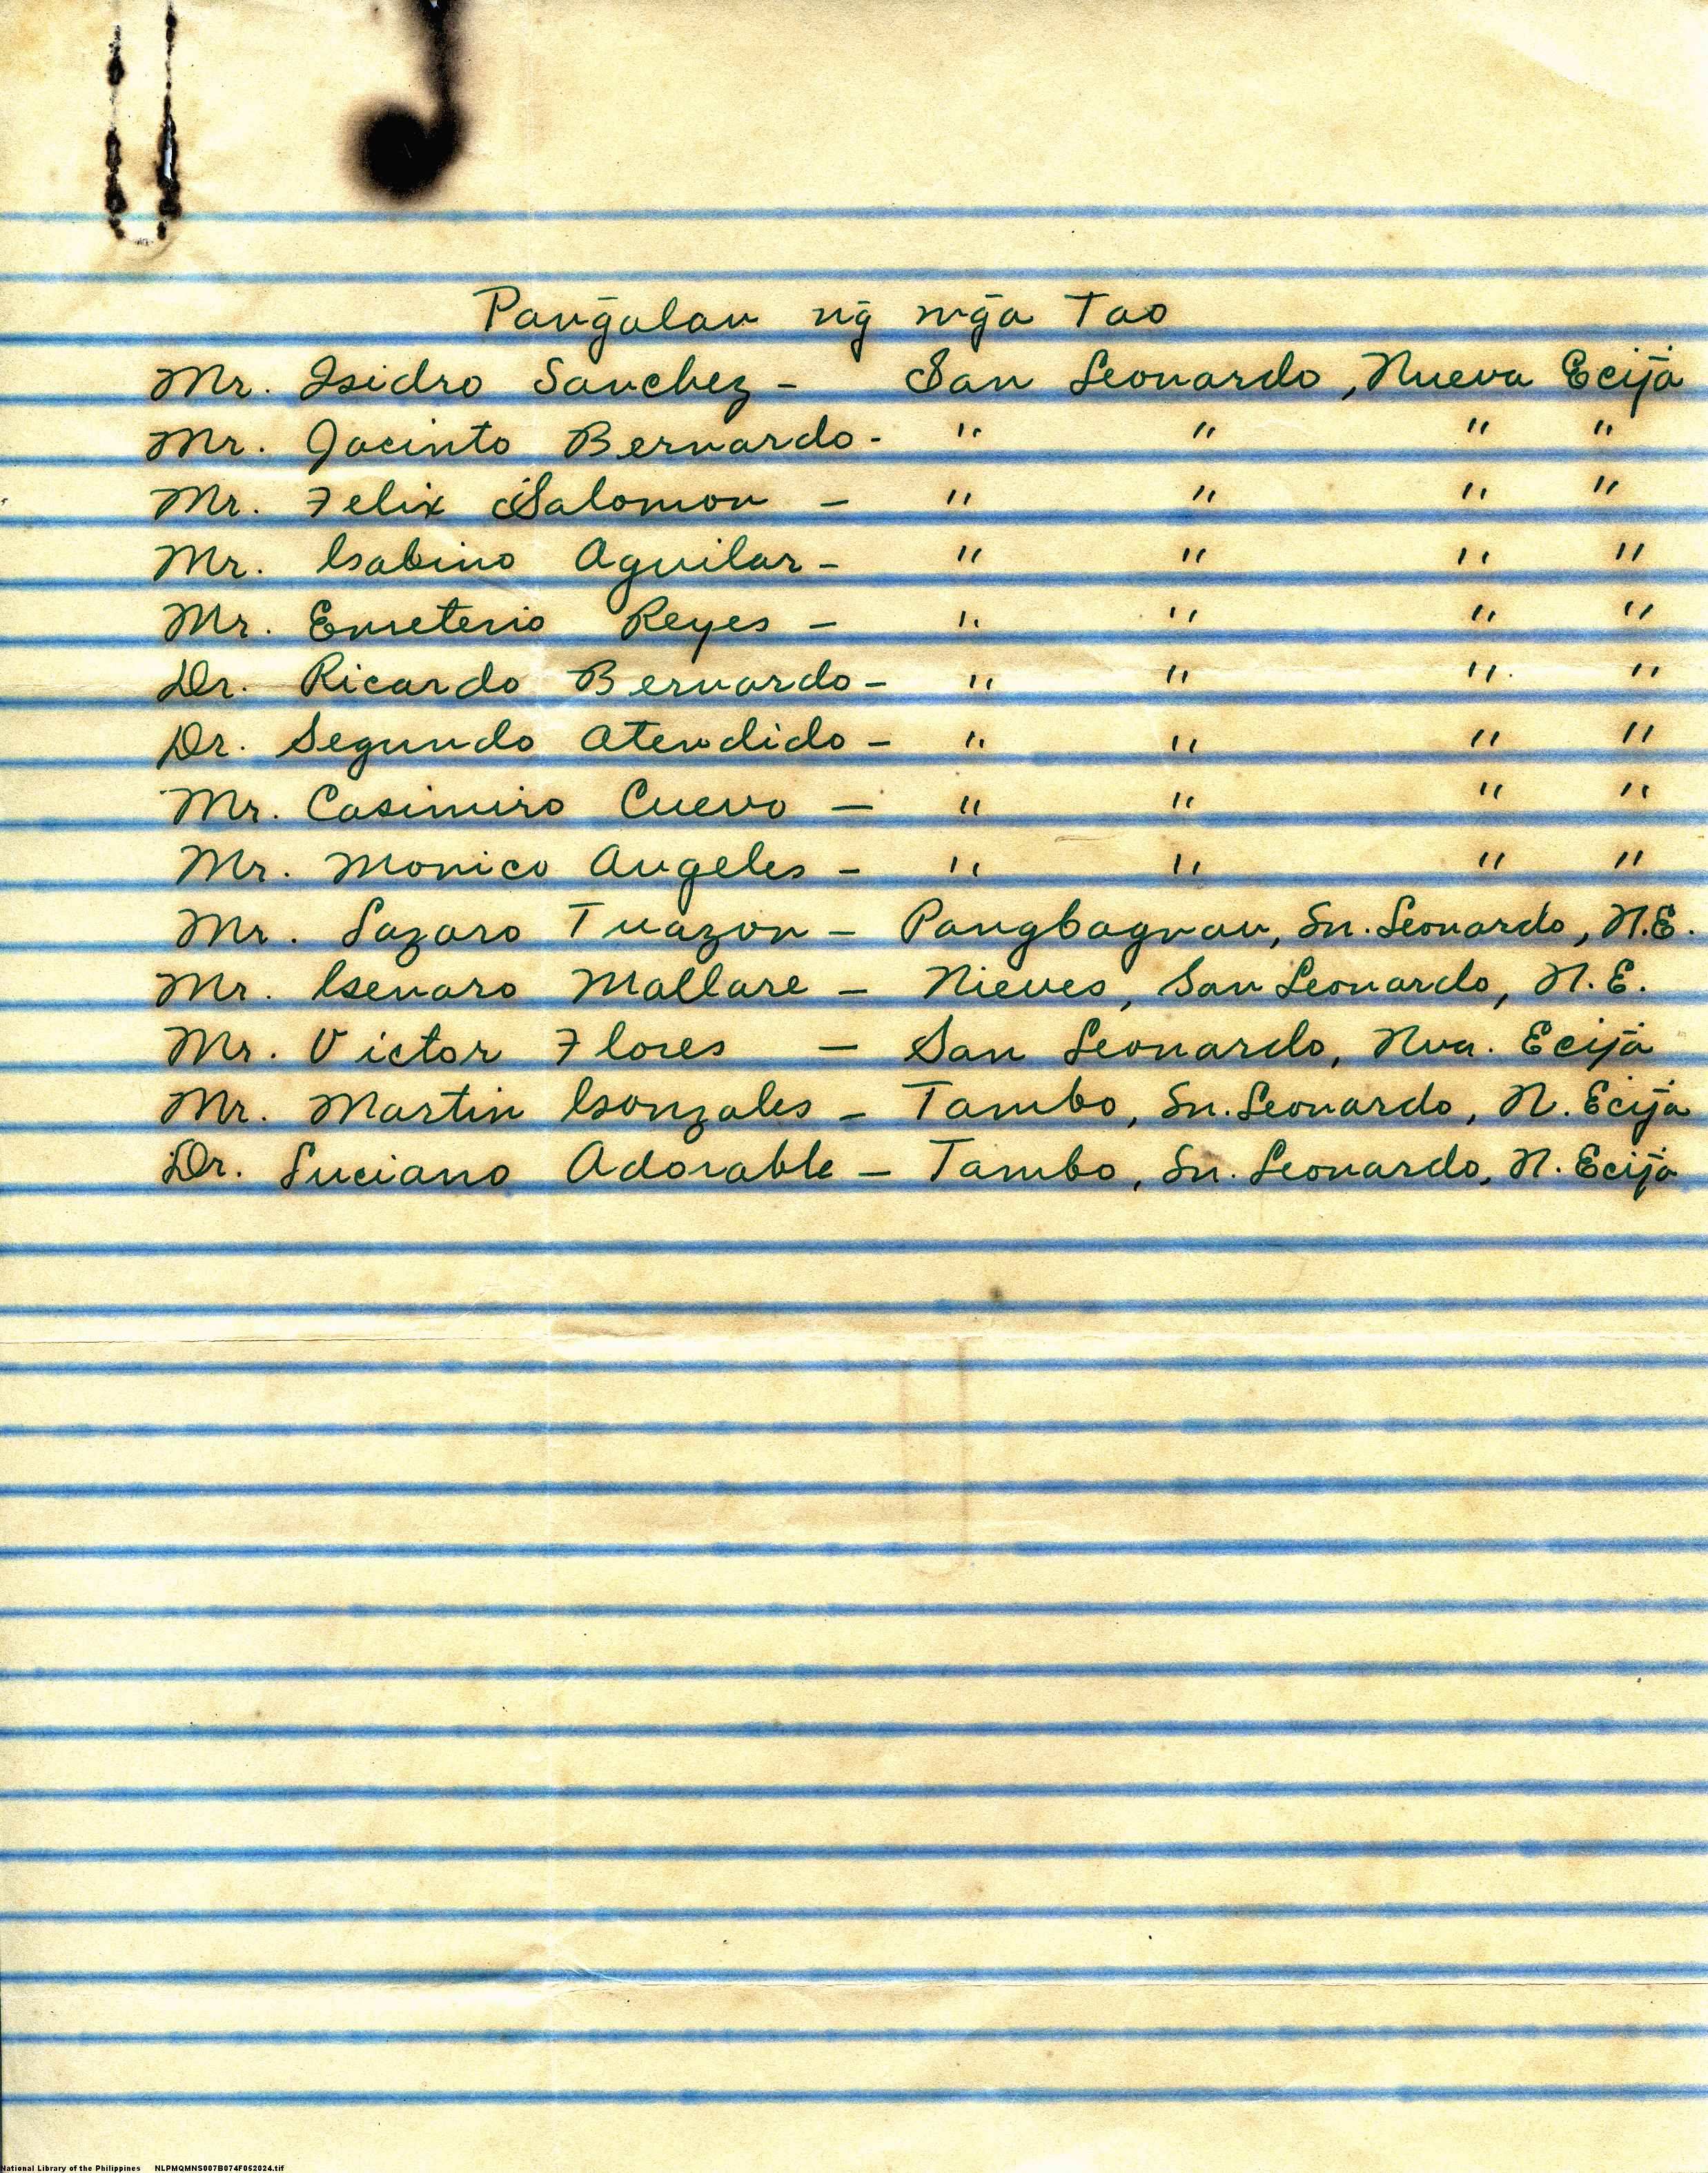 Pang̃alan ng̃ mg̃a Tao
Mr. Isidro Sanchez - San Leonardo, Nueva Ecija
Mr. Jacinto Bernardo - " " " "
Mr. Felix Salomon - " " " "
Mr. Gabino Aguilar - " " " "
Mr. Emeterio Reyes - " " " "
Dr. Ricardo Bernardo - " " " "
Dr. Segundo Atendido - " " " "
Mr. Casimiro Cuevo - " " " "
Mr. Monico Angeles - " " " "
Mr. Lazaro Tuazon - Pangbagnan, Sn. Leonardo, N.E.
Mr. Genaro Mallare - Nieves, San Leonardo, N.E.
Mr. Victor Flores - San Leonardo, Nva. Ecija
Mr. Martin Gonzales - Tambo, Sn. Leonardo, N. Ecija
Dr. Luciano Adorable - Tambo, Sn. Leonardo, N. Ecija
National Library of the Philippines NLPMQMNS007B074F052024.tif